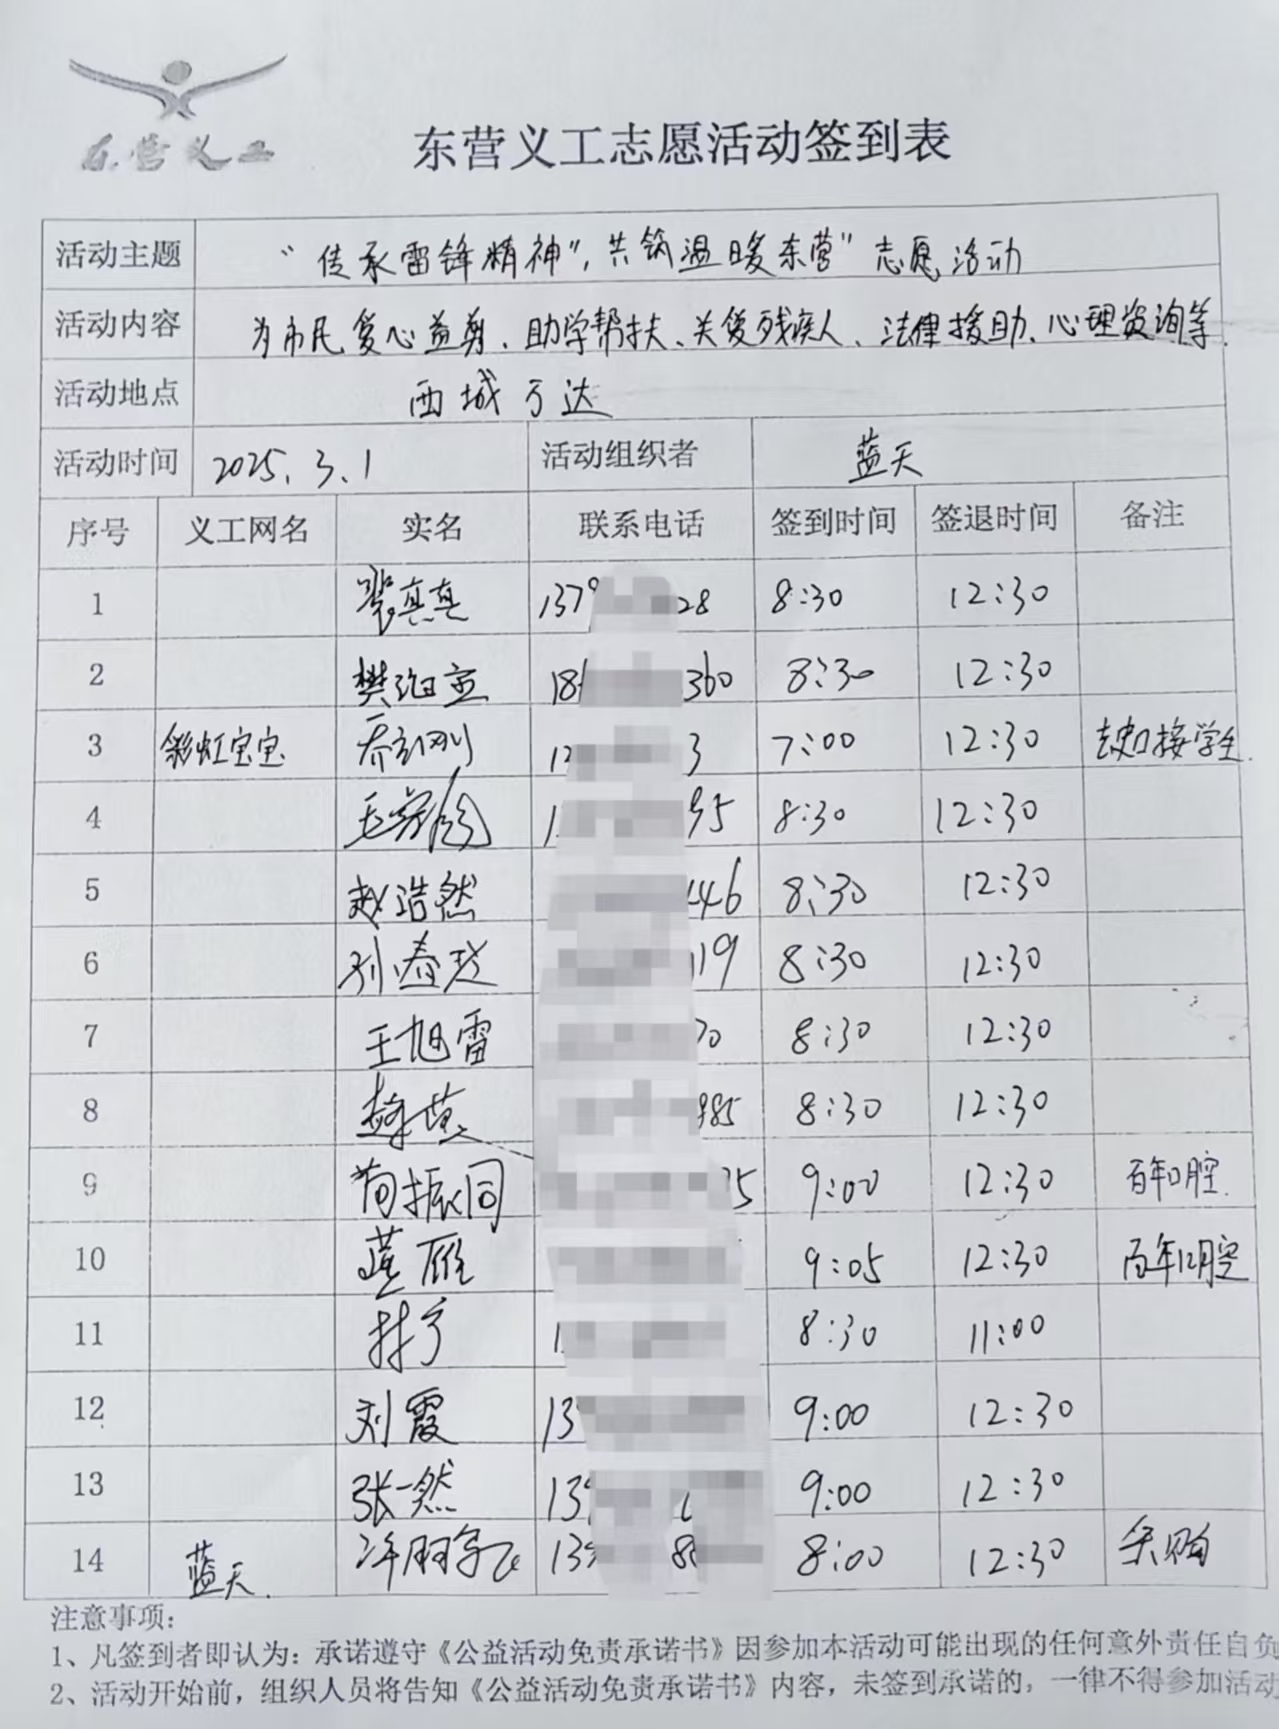 东营义工
东营义工志愿活动签到表
活动主题 "传承雷锋精神",共筑温暖东营"志愿活动
活动内容 为市民爱心益剪、助学帮扶、关爱残疾人、法律援助、心理资询等
活动地点 西城万达
活动时间 2025.3.1 活动组织者 蓝天
序号 义工网名 实名 联系电话 签到时间 签退时间 备注
1 裴真真 137 28 8:30 12:30
2 樊 18 360 8:30 12:30
3 彩虹宝宝 乔 刚 3 7:00 12:30 接学生.
4 95 8:30 12:30
5 赵浩然 446 8:30 12:30
6 119 8:30 12:30
7 王旭雷 70 8:30 12:30
8 985 8:30 12:30
9 振同 5 9:00 12:30 百年口腔
10 雁 9:05 12:30 百年口腔
11 8:30 11:00
12 刘霞 13 9:00 12:30
13 张一然 13 9:00 12:30
14 蓝天. 13 8 8:00 12:30 采购
注意事项:
1、凡签到者即认为:承诺遵守《公益活动免责承诺书》因参加本活动可能出现的任何意外责任自负
2、活动开始前,组织人员将告知《公益活动免责承诺书》内容,未签到承诺的,一律不得参加活动